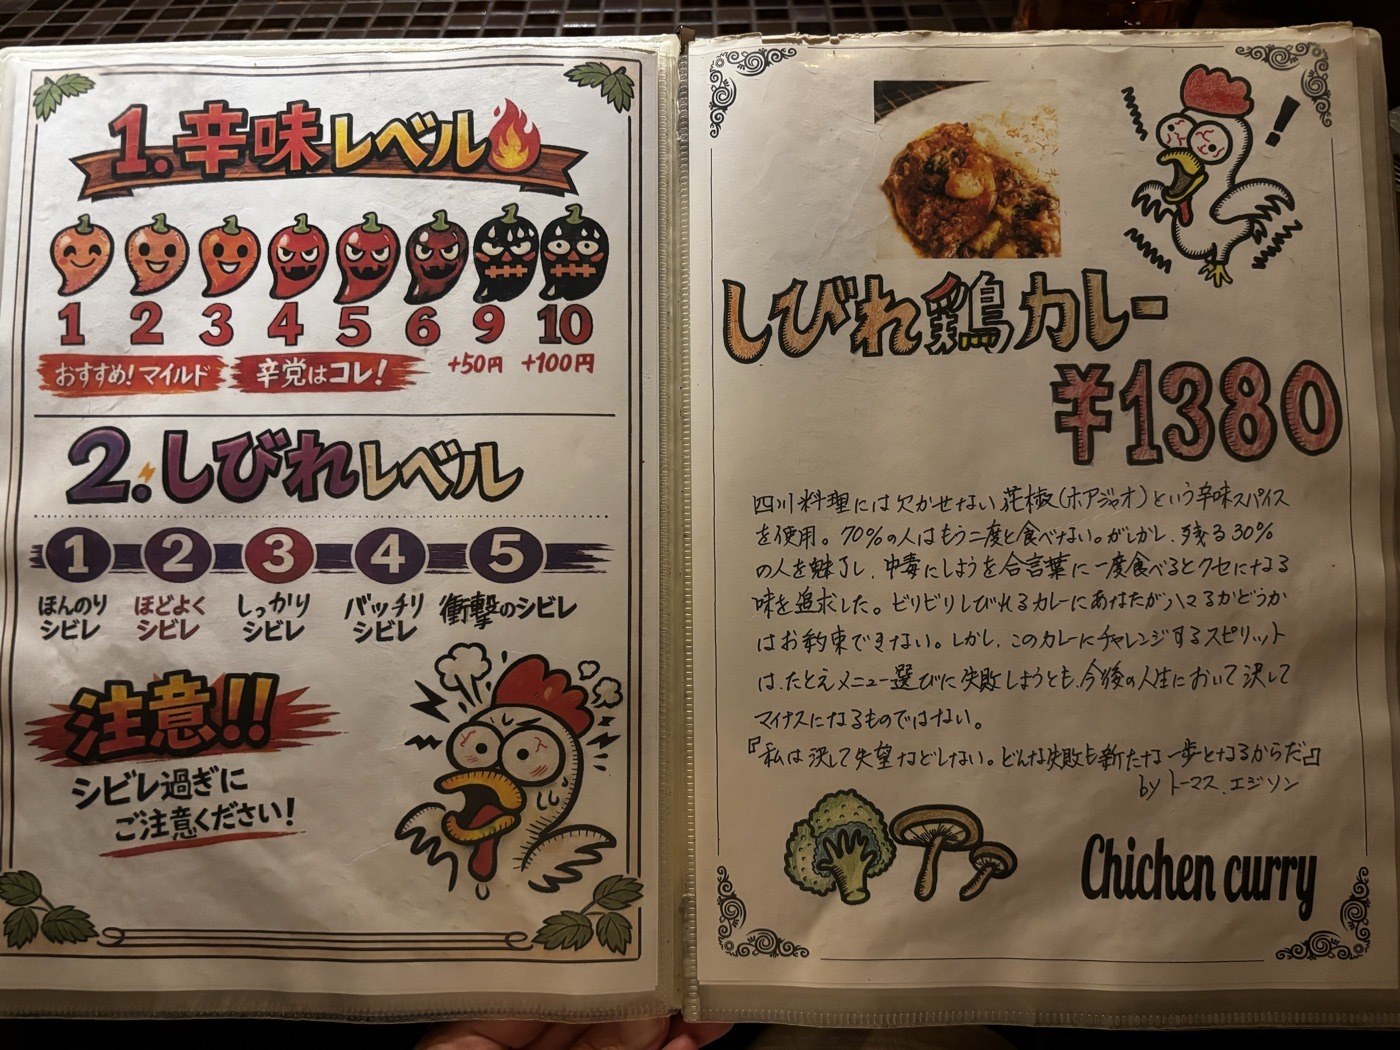 1.辛味レベル
1 2 3 4 5 6 9 10
おすすめ!マイルド 辛党はコレ! +50円 +100円
2.しびれレベル
1 2 3 4 5
ほんのりシビレ ほどよくシビレ しっかりシビレ バッチリシビレ 衝撃のシビレ
注意!!
シビレ過ぎに
ご注意ください!
しびれ鶏カレー
¥1380
四川料理には欠かせない花椒(ホアジャオ)という辛味スパイス
を使用。70%の人はもう二度と食べない。がしかし、残る30%
の人を魅了し、中毒にしようを合言葉に一度食べるとクセになる
味を追求した。ビリビリしびれるカレーにあなたがハマるかどうか
はお約束できない。しかし、このカレーにチャレンジするスピリット
は、たとえメニュー選びに失敗しようとも、今後の人生において決して
マイナスになるものではない。
『私は決して失望などしない。どんな失敗も新たな一歩となるからだ』
by トーマス.エジソン
Chichen curry